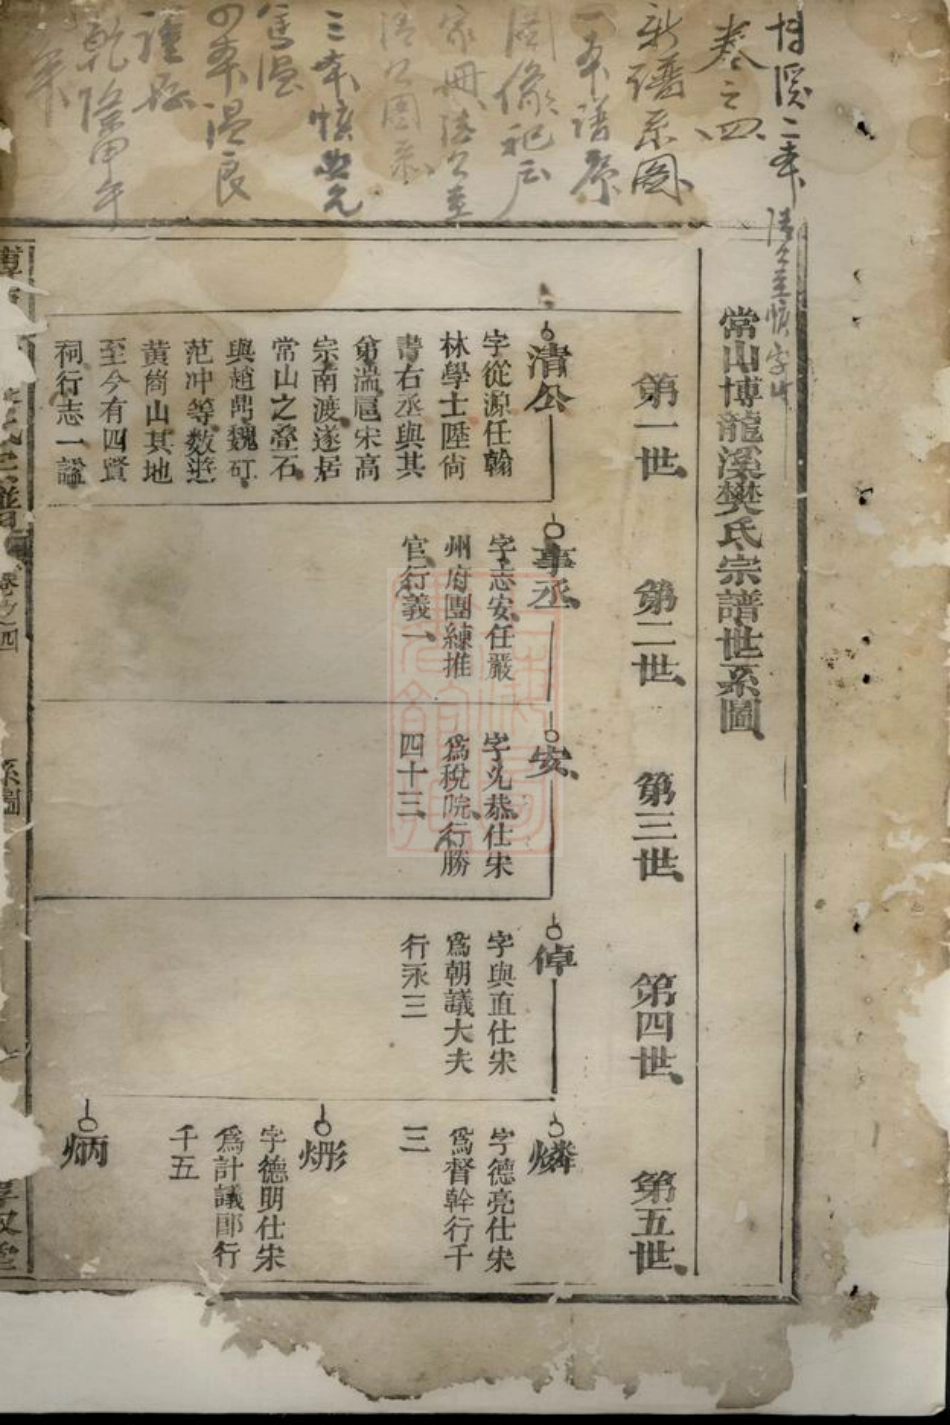 博溪二本
卷之四
新譜系圖
一本譜原
圖像祀戶
家冊清公至
清公圖系
三本
四本溫良
乾隆甲午
常山博龍溪樊氏宗譜世系圖
第一世
清公
字從源任翰
林學士陞尙
書右丞與其
弟滿扈宋高
宗南渡遂居
常山之壘石
與趙鼎魏矼
范冲等數遊
黃崗山其地
至今有四賢
祠行志一謚
第二世
事丞
字志安任嚴
州府團練推
官行義一
第三世
安
字允恭仕宋
爲稅院行勝
四十三
第四世
倬
字與直仕宋
爲朝議大夫
行永三
第五世
燐
字德亮仕宋
爲督幹行千
三
炵
字德明仕宋
爲計議郎行
千五
炳
氏宗譜
卷之四
系圖